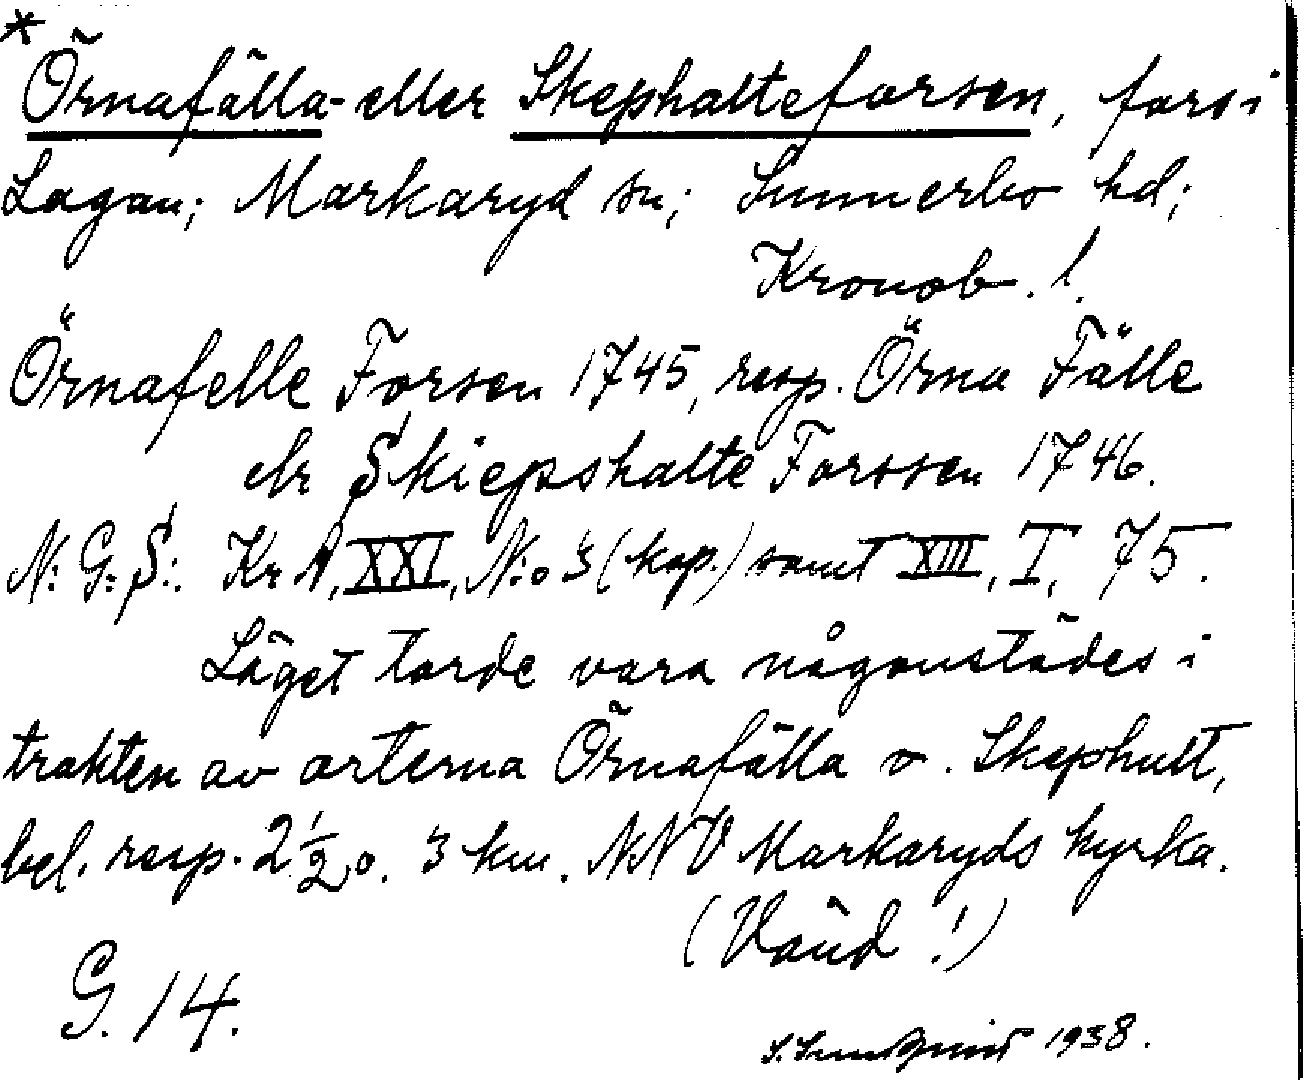 *
Örnafälla- eller Skephalteforsen, fors i
Lagan; Markaryd sn; Sunnerbo hd;
Kronob. l.
Örnafelle Forsen 1745, resp. Örna Fälle
elr Skiepshalte Forssen 1746.
N: G: S:. Kr A, XXI, N:o 3 (kop.) samt XIII, I, 75.
Läget torde vara någonstädes i
trakten av orterna Örnafälla o. Skephult,
bel. resp. 2 1/2 o. 3 km. NNV Markaryds kyrka.
(Vänd !)
G. 14.
S. Sundqvist 1938.